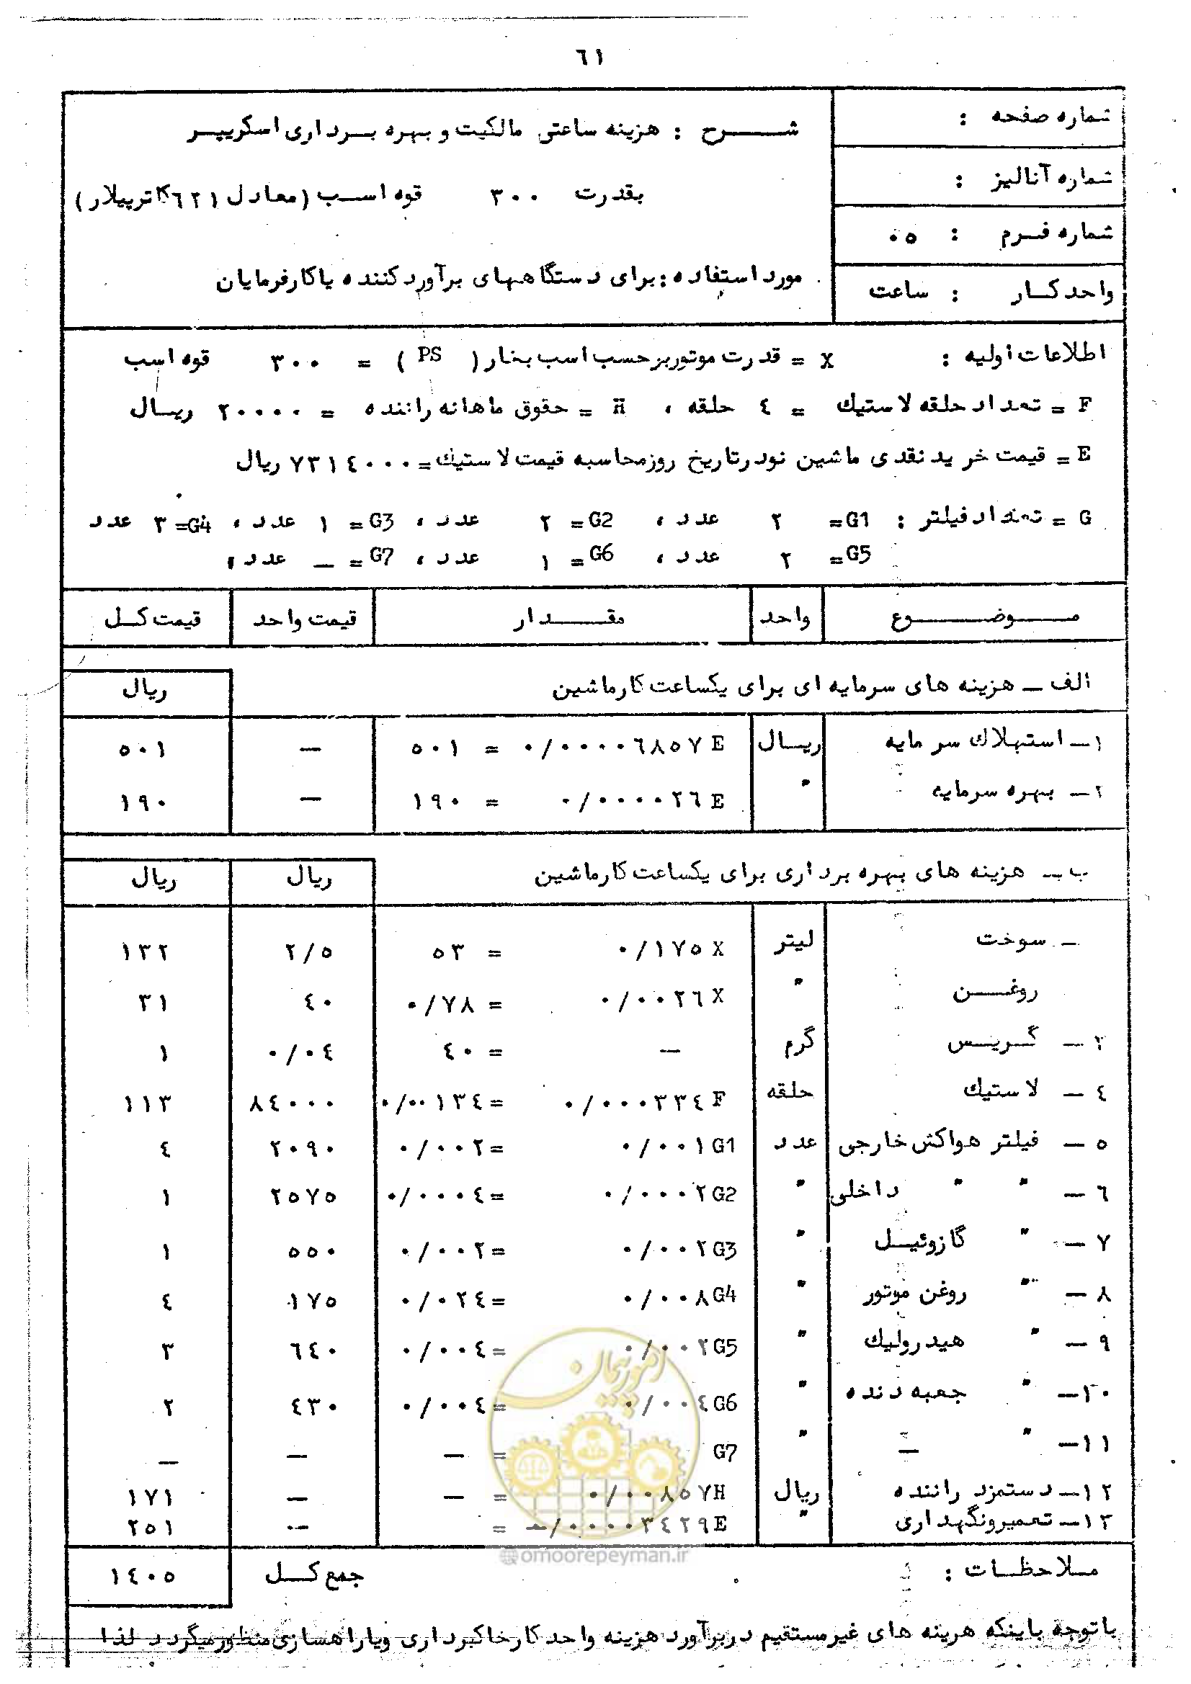 ٦١
شماره صفحه :
شماره آنالیز :
شماره فرم : ٠٥
واحد کار : ساعت
شرح : هزینه ساعتی مالکیت و بهره برداری اسکریپر
بقدرت ٣٠٠ قوه اسب (معادل ٦٢١ کاترپیلار)
مورد استفاده : برای دستگاههای برآورد کننده یا کارفرمایان .
اطلاعات اولیه : X = قدرت موتور بر حسب اسب بخار ( PS ) = ٣٠٠ قوه اسب
F = تعداد حلقه لاستیک = ٤ حلقه ، H = حقوق ماهانه راننده = ٢٠٠٠٠ ریال
E = قیمت خرید نقدی ماشین نو در تاریخ روز محاسبه قیمت لاستیک = ٧٣١٤٠٠٠ ریال
G = تعداد فیلتر : G1= ٢ عدد ، G2= ٢ عدد ، G3= ١ عدد ، G4= ٣ عدد
G5= ٢ عدد ، G6= ١ عدد ، G7= — عدد ،
موضوع واحد مقدار قیمت واحد قیمت کل
الف — هزینه های سرمایه ای برای یکساعت کار ماشین ریال
١— استهلاک سرمایه ریال ٠/٠٠٠٠٦٨٥٧ E = ٥٠١ — ٥٠١
٢— بهره سرمایه " ٠/٠٠٠٠٢٦ E = ١٩٠ — ١٩٠
ب — هزینه های بهره برداری برای یکساعت کار ماشین ریال ریال
— سوخت لیتر ٠/١٧٥ X = ٥٣ ٢/٥ ١٣٢
روغن " ٠/٠٠٢٦ X = ٠/٧٨ ٤٠ ٣١
٣ — گریس گرم — = ٤٠ ٠/٠٤ ١
٤ — لاستیک حلقه ٠/٠٠٠٣٣٤ F = ٠/٠٠١٣٤ ٨٤٠٠٠ ١١٣
٥ — فیلتر هواکش خارجی عدد ٠/٠٠١ G1 = ٠/٠٠٢ ٢٠٩٠ ٤
٦ — " " داخلی " ٠/٠٠٠٢ G2 = ٠/٠٠٠٤ ٢٥٧٥ ١
٧ — " گازوئیل " ٠/٠٠٢ G3 = ٠/٠٠٢ ٥٥٠ ١
٨ — " روغن موتور " ٠/٠٠٨ G4 = ٠/٠٢٤ ١٧٥ ٤
٩ — " هیدرولیک " ٠/٠٠٢ G5 = ٠/٠٠٤ ٦٤٠ ٣
١٠— " جعبه دنده " ٠/٠٠٤ G6 = ٠/٠٠٤ ٤٣٠ ٢
١١— " — " G7 = — — —
١٢— دستمزد راننده ریال ٠/٠٠٨٥٧ H = — — ١٧١
١٣— تعمیر و نگهداری " ٠/٠٠٠٠٣٤٢٩ E = — — ٢٥١
امور پیمان
@omoorepeyman.ir
ملاحظات : جمع کل ١٤٠٥
با توجه باینکه هزینه های غیرمستقیم در برآورد هزینه واحد کار خاکبرداری و یا راهسازی منظور میگردد لذا